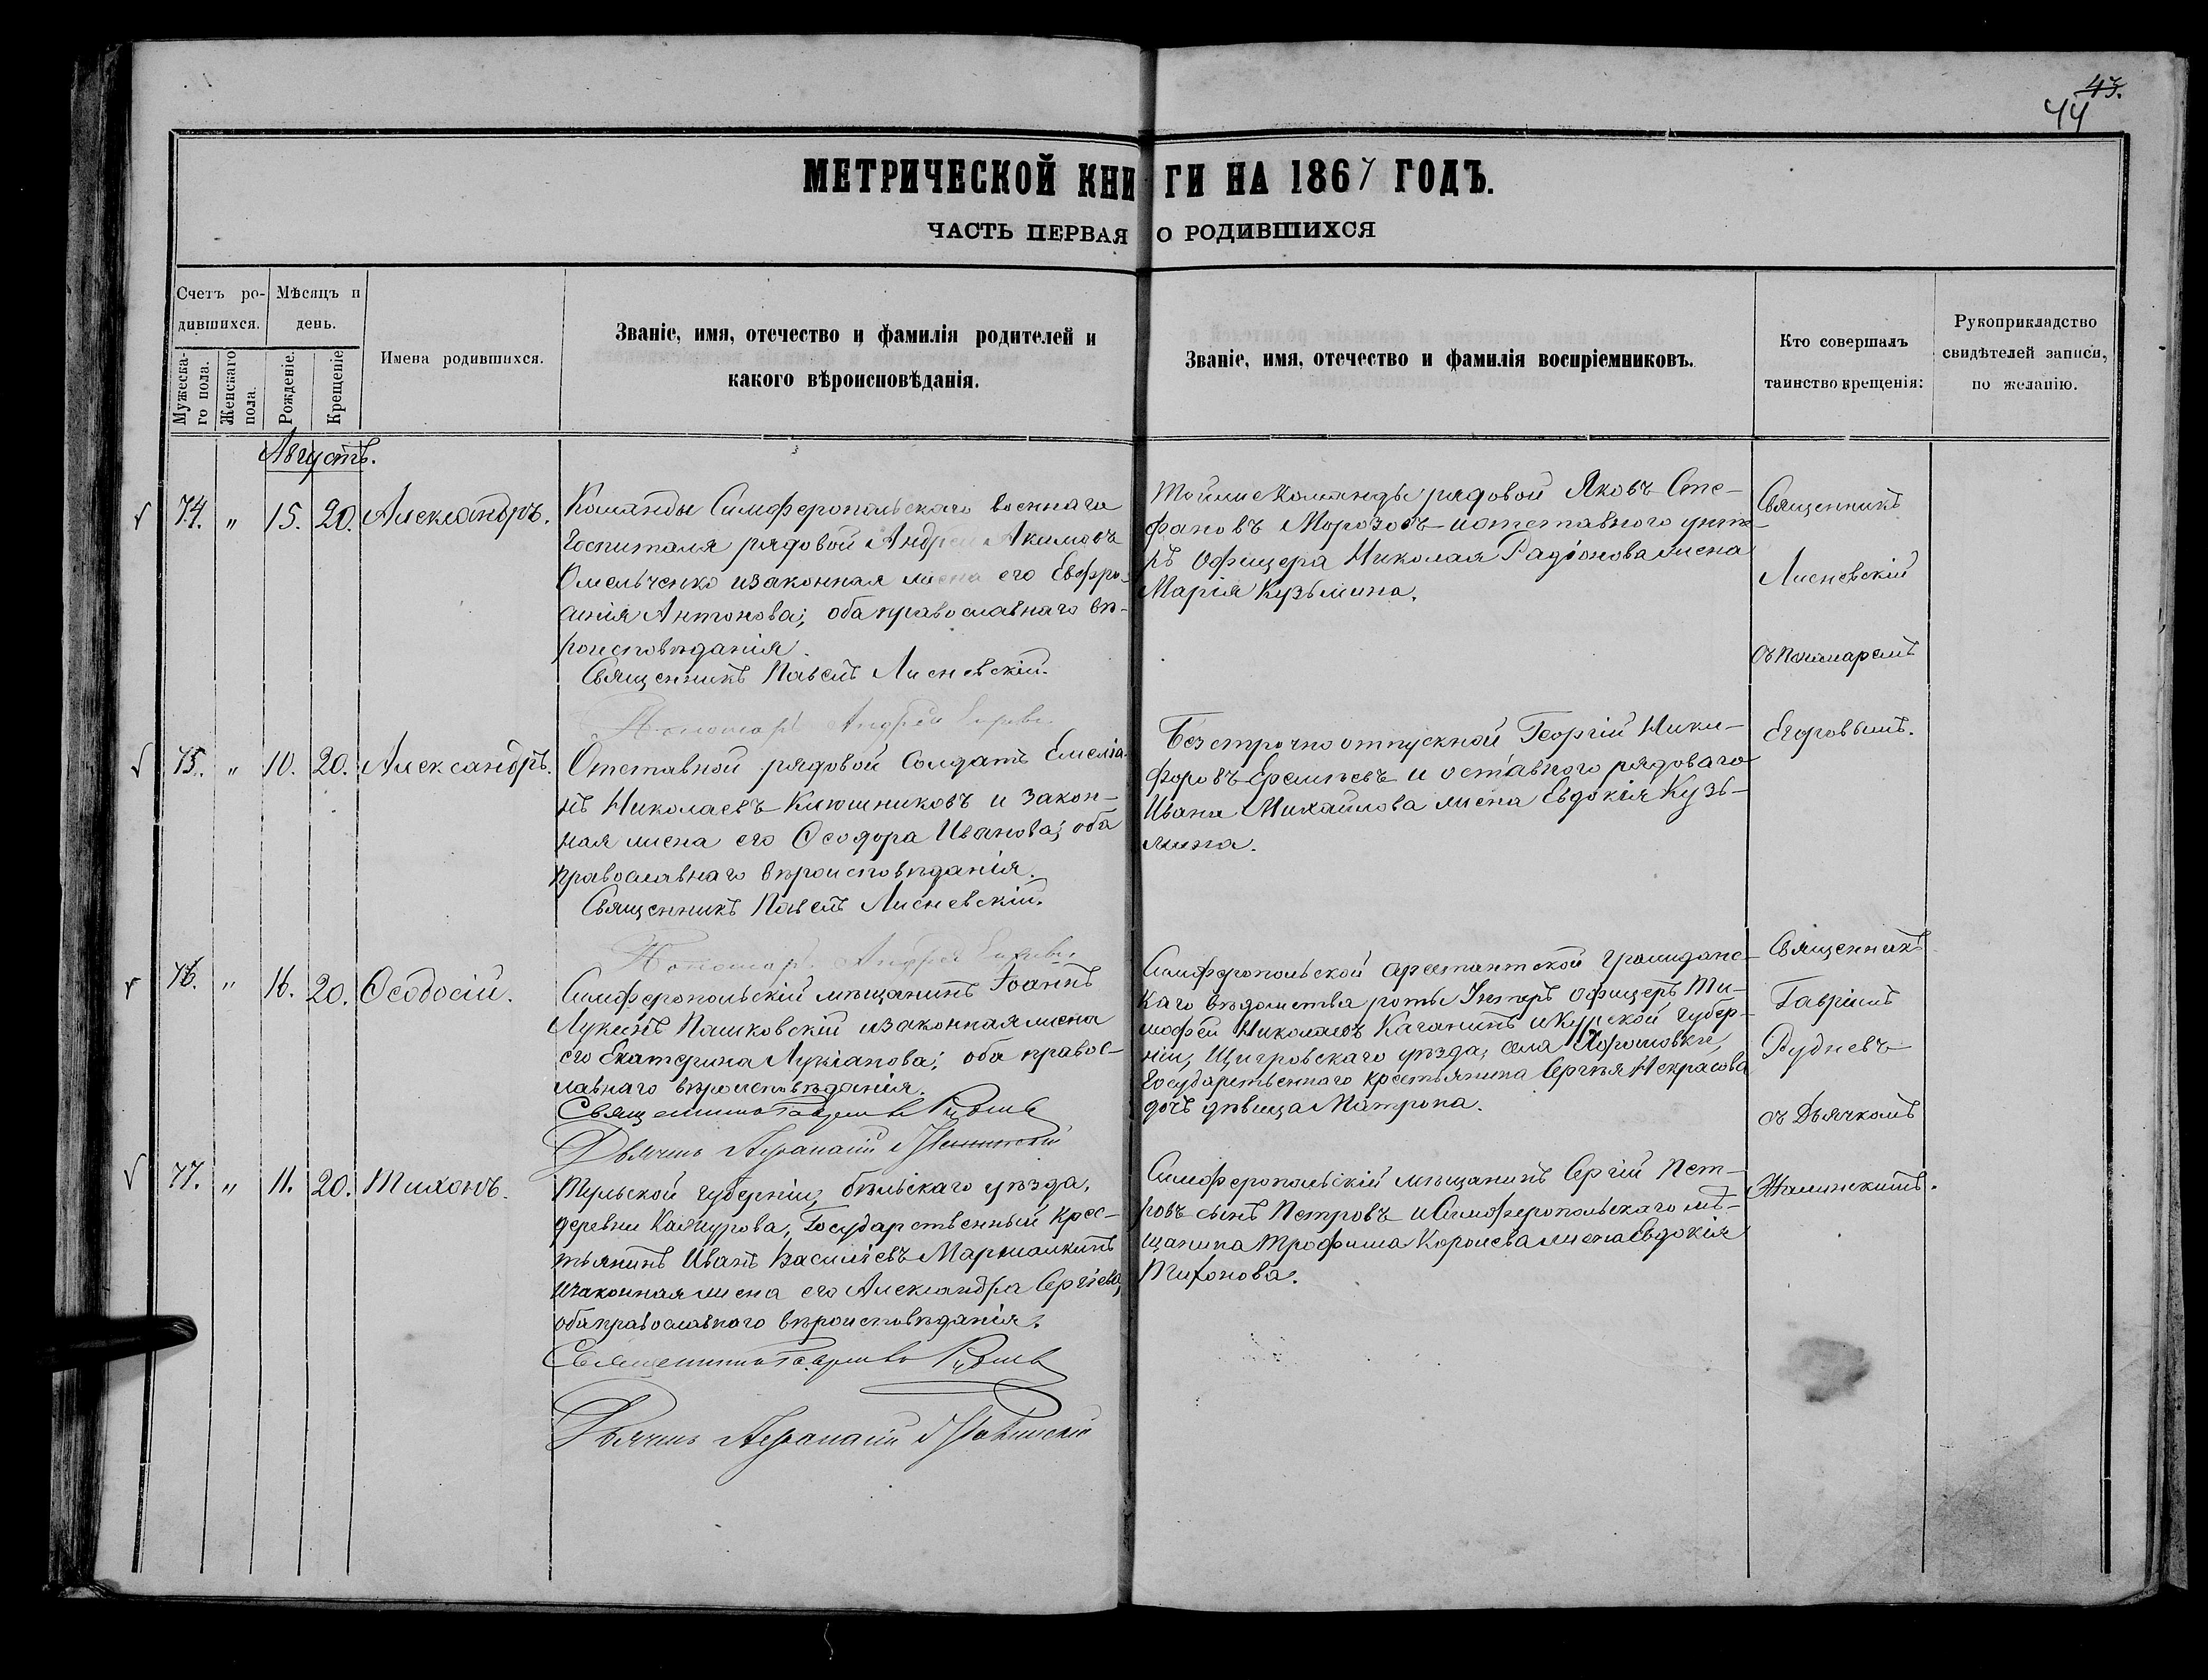 43.
44
МЕТРИЧЕСКОЙ КНИГИ НА 1867 ГОДЪ.
ЧАСТЬ ПЕРВАЯ О РОДИВШИХСЯ
Счетъ ро-
дившихся.
Мужеска-
го пола.
Женскаго
пола.
Мѣсяцъ и
день.
Рожденіе.
Крещеніе
Имена родившихся.
Званіе, имя, отечество и фамилія родителей и
какого вѣроисповѣданія.
Званіе, имя, отечество и фамилія воспріемниковъ.
Кто совершалъ
таинство крещенія:
Рукоприкладство
свидѣтелей записи,
по желанію.
Августъ.
74. " 15. 20. Александръ.
Команды Симферопольскаго военнаго
госпиталя рядовой Андрей Акимовъ
Омельченко и законная жена его Евфро-
синія Антонова; оба православнаго вѣ-
роисповѣданія.
Священникъ Павелъ Лисневскій.
Пономарь Андрей
Тойже команды рядовой Яковъ Сте-
фановъ Морозовъ и отставного унте-
ръ офицера Николая Радіонова жена
Марія Кузьмина.
Священникъ
Лисневскій
съ Пономаремъ
Егоровымъ.
75. " 10. 20. Александръ.
Отставной рядовой солдатъ Емеліа-
нъ Николаевъ Ключниковъ и закон-
ная жена его Ѳеодора Иванова; оба
православнаго вѣроисповѣданія.
Священникъ Павелъ Лисневскій.
Пономарь Андрей
Безсрочно отпускной Георгій Ники-
форовъ Еремѣевъ и оставного рядоваго
Ивана Михайлова жена Евдокія Кузь-
мина.
76. " 16. 20. Ѳеодосій.
Симферопольскій мѣщанинъ Іоаннъ
Лукинъ Пашковскій и законная жена
его Екатерина Лукіанова; оба правос-
лавнаго вѣроисповѣданія.
Священникъ Гавріилъ Рудневъ
Дьячекъ Афанасій
Симферопольской арестантской гражданс-
каго вѣдомства роты Унтеръ офицеръ Ти-
мофей Николаевъ Каганинъ и Курской губер-
ніи, Щигровскаго уѣзда, села
Государственнаго крестьянина Сергѣя Некрасова
дочь дѣвица Матрона.
Священникъ
Гавріилъ
Рудневъ
съ Дьячкомъ
77. " 11. 20. Тихонъ.
Тульской губерніи, бѣльскаго уѣзда,
деревни Кашурова, Государственный крес-
тьянинъ Иванъ Василіевъ Маршалкинъ
и законная жена его Александра Сергіева,
оба православнаго вѣроисповѣданія.
Священникъ Гавріилъ Рудневъ
Дьячекъ Афанасій
Симферопольскій мѣщанинъ Сергій Пет-
ровъ сынъ Петровъ и Симферопольскаго мѣ-
щанина Трофима Королева жена Евдокія
Тихонова.